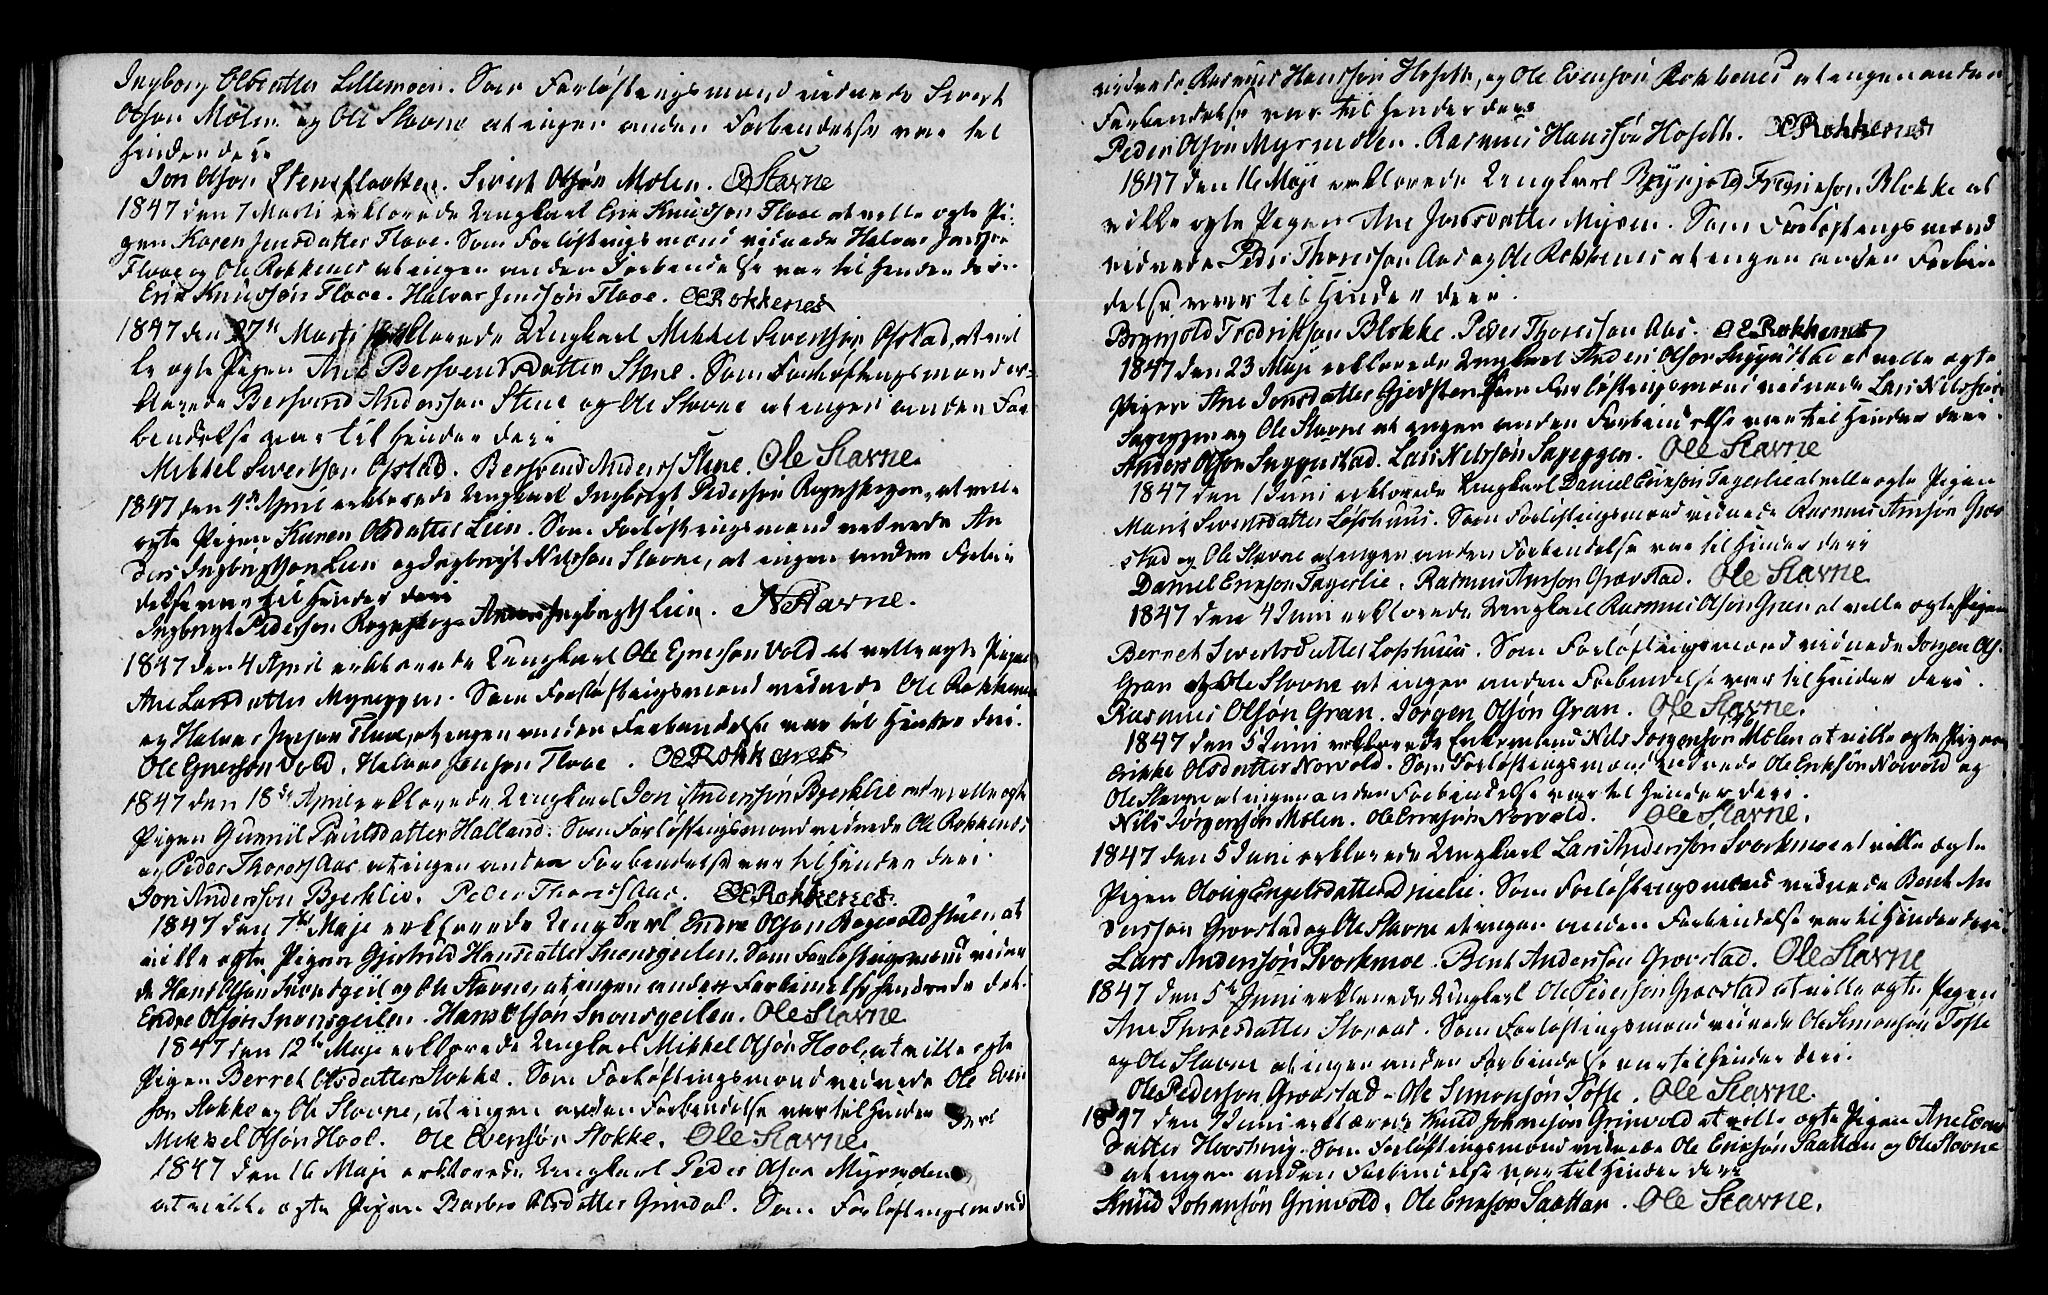 Ingborg Olsdatter Lillemoen. Som Forløftingsmænd vidnede Sivert
Olson Mølen og Ole Stavne at ingen anden Forbendelse var til
hender dere
Jon Olson Stensflaatten. Sivert Olsøn Molen. OE Stavne
1847 den 7 Marti erklærede Ungkarl Erik Knudson Flaae at velle egte Pi-
gen Karen Jensdatter Flaae. Som Forløftingsmænd vidnede Halvor Jensøn
Flaae og Ole Rokkenes at ingen anden Forbendelse var til hender dere
Erik Knudsøn Flaae. Halvor Jensøn Flaae. OE Rokkenes
1847 den 27de Marti erklærede Ungkarl Mekkel Sivertson Ofstad, at vil
le egte Pigen Ane Bersvendsdatter Stene. Som Forløftingsmænd er-
klærede Bersvend Anderson Stene og Ole Stavne at ingen anden For
bendelse var til hender dere
Mekkel Sivertson Ofstad. Bersvend Anders Stene. Ole Stavne.
1847 den 4de April erklærede Ungkarl Ingbrigt Pederson Rognskogen, at ville
egte Pigen Karen Olsdatter Lien. Som Forløftingsmænd vidnede An
ders Ingbrigtson Lien og Ingbrigt Nilsson Stavne, at ingen anden Forben
delse var til hender dere
Ingbrigt Pederson Rognskogn Anders Ingbrigts Lien. N Stavne.
1847 den 4 April erklærede Ungkarl Ole Enerson Vold at velle egte Pigen
Ane Larsdatter Myreggen. Som Forløftingsmænd vidnede Ole Rokkenes
og Halvor Jenson Flaae, at ingen anden Forbendelse var til hender dere.
Ole Enerson Vold. Halvor Jenson Flaae. OE Rokkenes
1847 den 18de April erklærede Ungkarl Jon Andersøn Bjerklie at velle egte
Pigen Gunnil Paulsdatter Halland. Som Forløftingsmænd vidnede Ole Rokkenes
og Peder Thores Aas at ingen anden Forbendelse var til hender dere.
Jon Andersson Bjerklie. Peder Thores Aas. OE Rokkenes.
1847 den 7de Maje erklærede Ungkarl Endre Olson Rogvoldstuen at
ville egte Pigen Gjertrud Hansdatter Svensgeilen. Som Forløftingsmænd vidne
de Hans Olsøn Svensgeil og Ole Stavne, at ingen anden Forbendelse hendrede det.
Endre Olsøn Svensgeilen. Hans Olsøn Svensgeilen. Ole Stavne
1847 den 12te Maje erklærede Ungkarl Mikkel Olsøn Hool, at ville egte
Pigen Berret Olsdatter Stokke. Som Forløftingsmænd vidnede Ole Even
son Stokke og Ole Stavne, at ingen anden Forbendelse var til hender dere
Mekkel Olsøn Hool. Ole Evensøn Stokke. Ole Stavne.
1847 den 16 Maje erklærede Ungkarl Peder Olson Myrmolen
at velle egte Pigen Barbro Olsdatter Grindal. Som Forløftingsmænd
vidnede Rasmus Hansson Hoseth, og Ole Evenson Rokkenes at ingen anden
Forbendelse var til hender dere
Peder Olsøn Myrmolen. Rasmus Hanssøn Hoseth. OE Rokkenes
1847 den 16 Maje erklærede Ungkarl Brynjold Fredrikson Blokke at
ville egte Pigen Ane Jonsdatter Myren. Som Forløftingsmænd
vidnede Peder Thoresson Aas og Ole Rokkenes at ingen anden Forben
delse var til hender dere.
Brynjold Fredrikson Blokke. Peder Thoresson Aas. OE Rokkenes
1847 den 23 Maje erklærede Ungkarl Anders Olson at velle egte
Pigen Ane Jonsdatter Som Forløftingsmænd vidnede Lars Nilsson
og Ole Stavne at ingen anden Forbendelse var til hender dere.
Anders Olson Lars Nilssøn Ole Stavne
1847 den 1 Juni erklærede Ungkarl Daniel Erikson Fagerlie at velle egte Pigen
Marit Sivertsdatter Lofshuus. Som Forløftingsmænd vidnede Rasmus Arnsøn Græv
stad og Ole Stavne at ingen anden Forbendelse var til hender dere
Daniel Erikson Fagerlie. Rasmus Arnson Grævstad. Ole Stavne
1847 den 4 Juni erklærede Ungkarl Rasmus Olson Gran at velle egte Pigen
Berret Sivertsdatter Lofshuus. Som Forløftingsmænd vidnede Jorgen Ols.
Gran og Ole Stavne at ingen anden Forbendelse var til hender dere.
Rasmus Olsøn Gran. Jorgen Olsøn Gran. Ole Stavne.
1847 den 5 Juni erklærede Enkemand Nils Jorgenson Mølen at ville egte Pigen
Erikke Olsdatter Norvold. Som Forløftingsmænd vidnede Ole Eriksøn Norvold og
Ole Stavne at ingen anden Forbendelse var til hender dere.
Nils Jörgensøn Mølen. Ole Eriksøn Norvold. Ole Stavne.
1847 den 5 Juni erklærede Ungkarl Lars Anderson Svorkmoe at ville egte
Pigen Engelsdatter Som Forløftingsmænd vidnede Bent An
dersson Grøvstad og Ole Stavne at ingen anden Forbendelse var til hender dere.
Lars Andersøn Svorkmoe. Bent Andersøn Grovstad. Ole Stavne
1847 den 5te Juni erklærede Ungkarl Ole Pederson Grøvstad at ville egte Pigen
Ane Thoresdatter Storaas. Som Forløftingsmænd vidnede Ole Simonsøn Tofte
og Ole Stavne at ingen anden Forbendelse var til hender dere.
Ole Pederson Grovstad - Ole Simonsøn Tofte. Ole Stavne
1847 den 7 Juni erklærede Knud Johansøn Grinvold at velle egte Pigen Ane Evens
datter Som Forløftingsmænd vidnede Ole Eriksøn Saattan og Ole Stavne
at ingen anden Forbendelse var til hender dere
Knud Johansøn Grinvold. Ole Erikson Saattan. Ole Stavne.